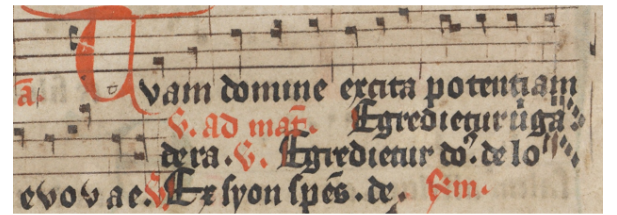 a. Tuam domine excita potentiam
V. ad mat. Egredietur virga
dera. V. Egredietur do. de lo
evovae. V. Ex syon spes. de. fem.